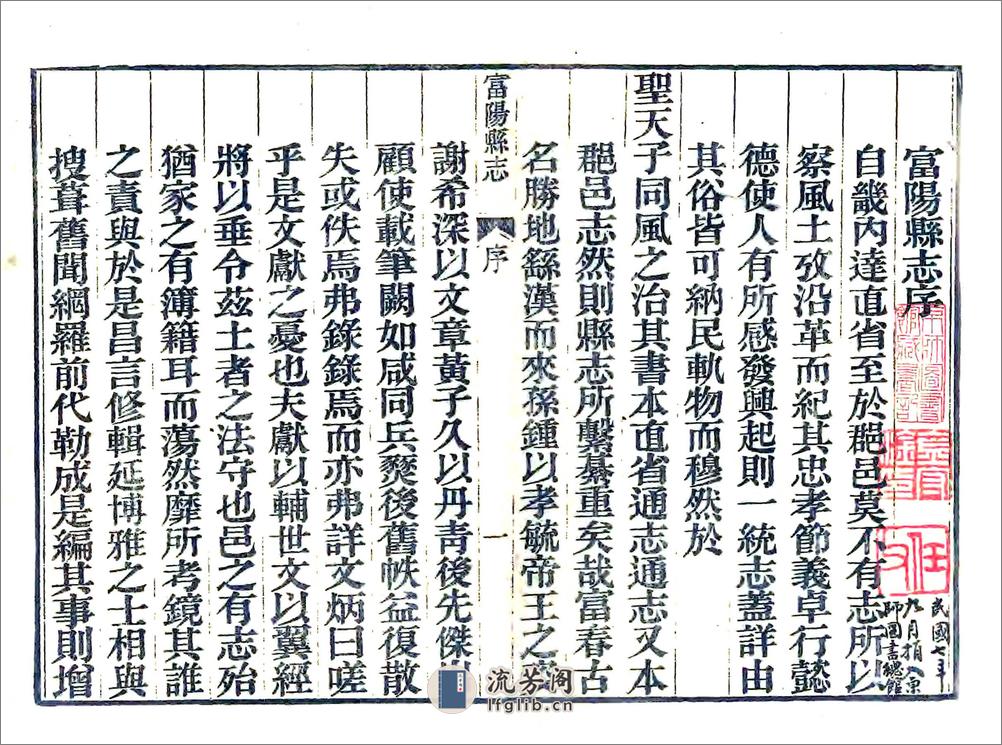 富陽縣志序
自畿內達直省至於郡邑莫不有志所以
察風土攷沿革而紀其忠孝節義卓行懿
德使人有所感發興起則一統志蓋詳由
其俗皆可納民軌物而穆然於
聖天子同風之治其書本直省通志通志又本
郡邑志然則縣志所繫綦重矣哉富春古
名勝地繇漢而來孫鍾以孝毓帝王之
富陽縣志
序
一
謝希深以文章黃子久以丹青後先傑
顧使載筆闕如咸同兵燹後舊帙益復散
失或佚焉弗錄錄焉而亦弗詳文炳曰嗟
乎是文獻之憂也夫獻以輔世文以翼經
將以垂令茲土者之法守也邑之有志殆
猶家之有簿籍耳而蕩然靡所考鏡其誰
之責與於是昌言修輯延博雅之士相與
搜葺舊聞網羅前代勒成是編其事則增
民國七年
九月捐入京
師圖書總館
流芳阁
lfglib.cn